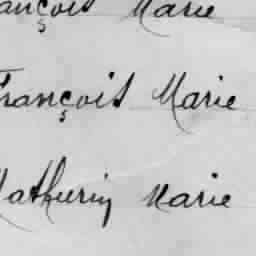 François Marie
François Marie
Mathurin Marie